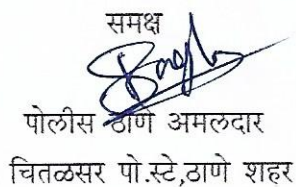 समक्ष
पोलीस ठाणे अमलदार
चितळसर पो.स्टे,ठाणे शहर